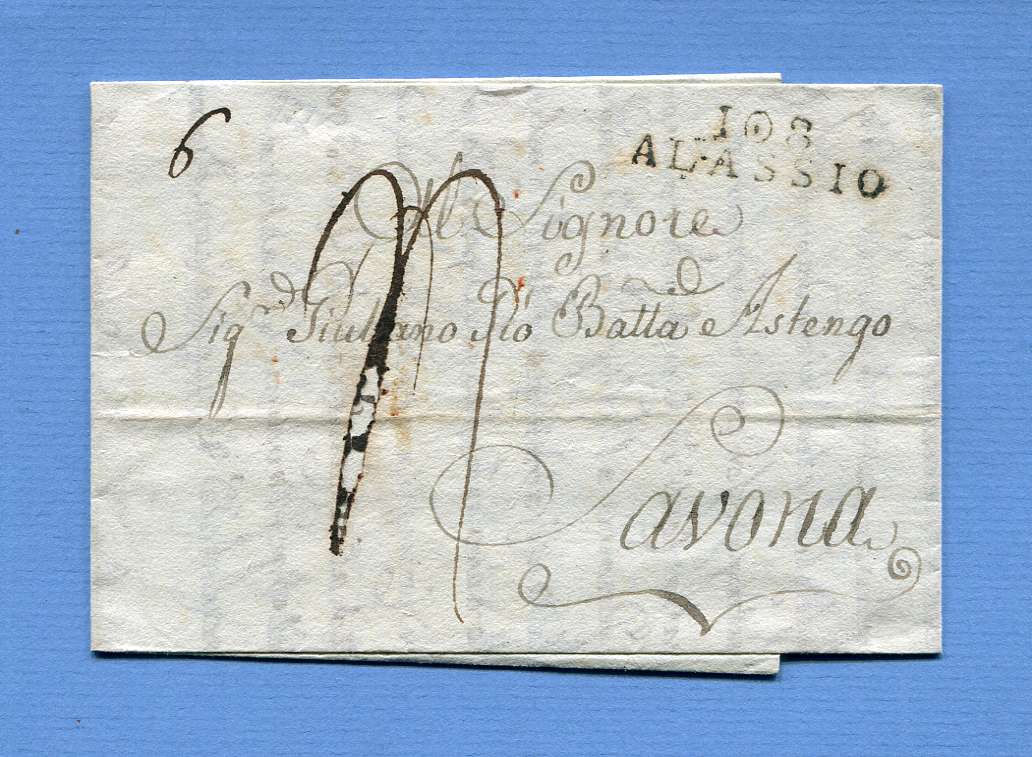 6
108
ALASSIO
Al Signore
Sig.r Giuliano Gio Batta Astengo
Savona